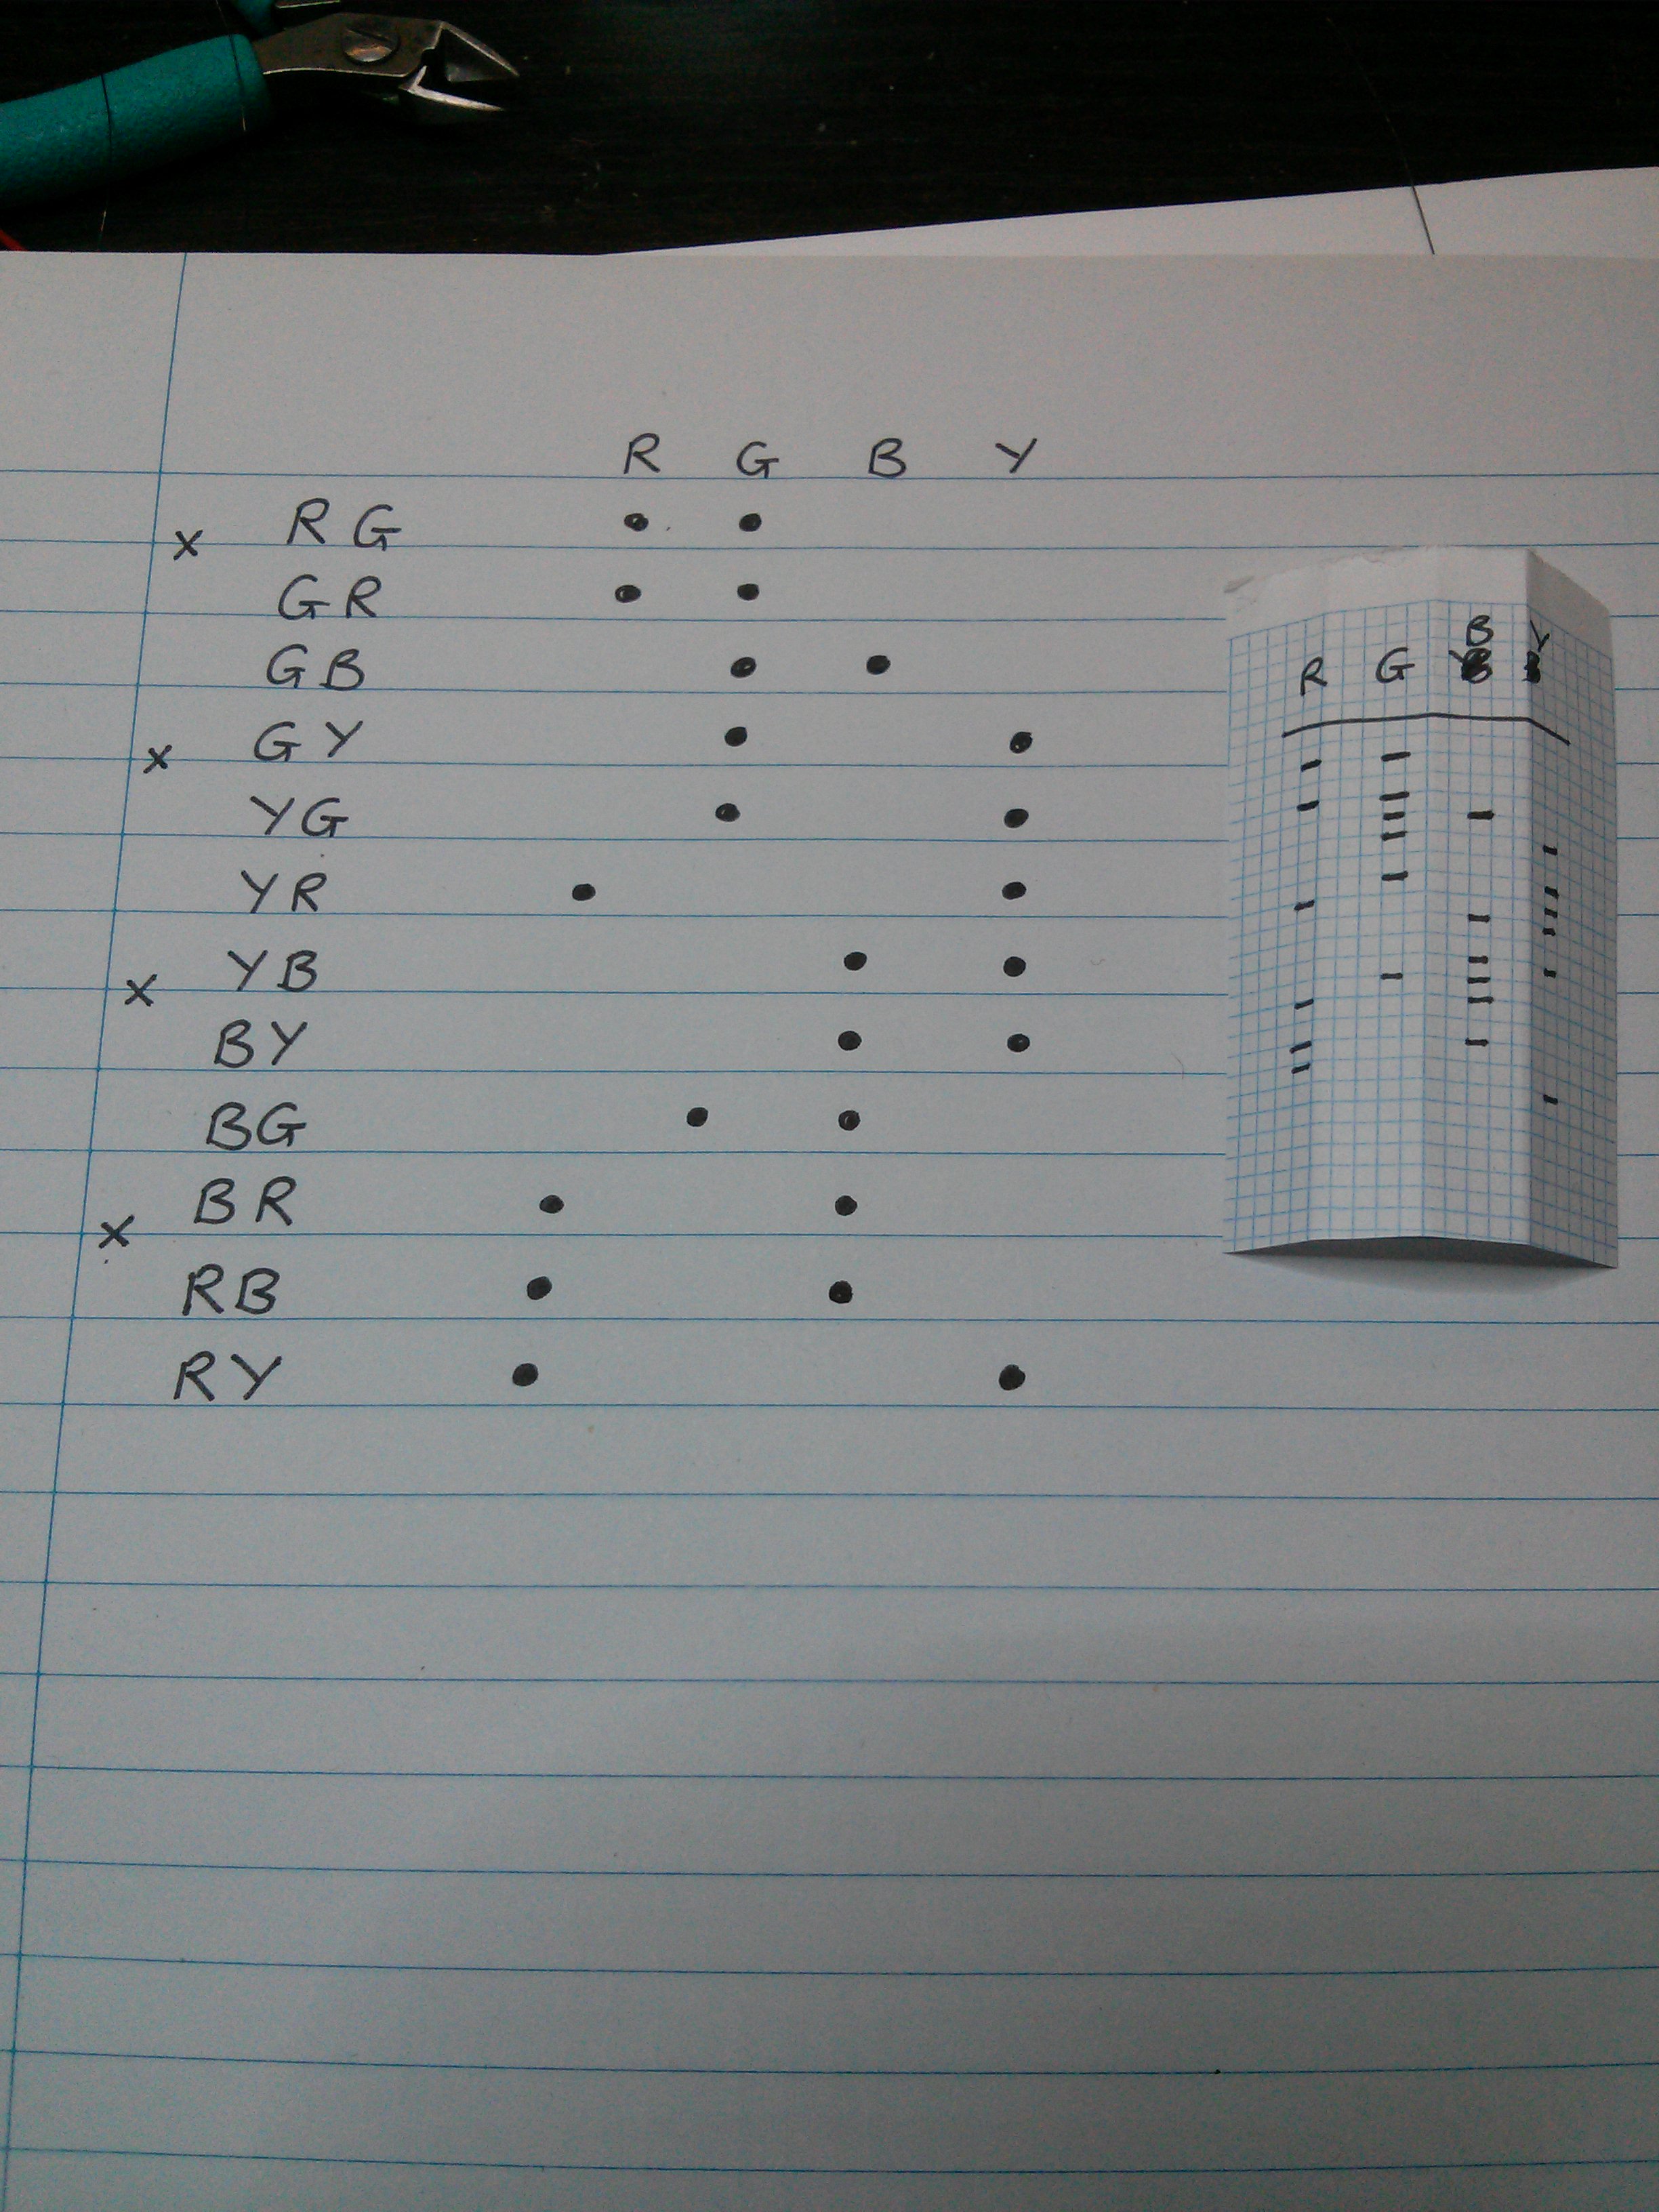 R G B Y
x RG
GR
GB
x GY
YG
YR
x YB
BY
BG
x BR
RB
RY
B Y
R G